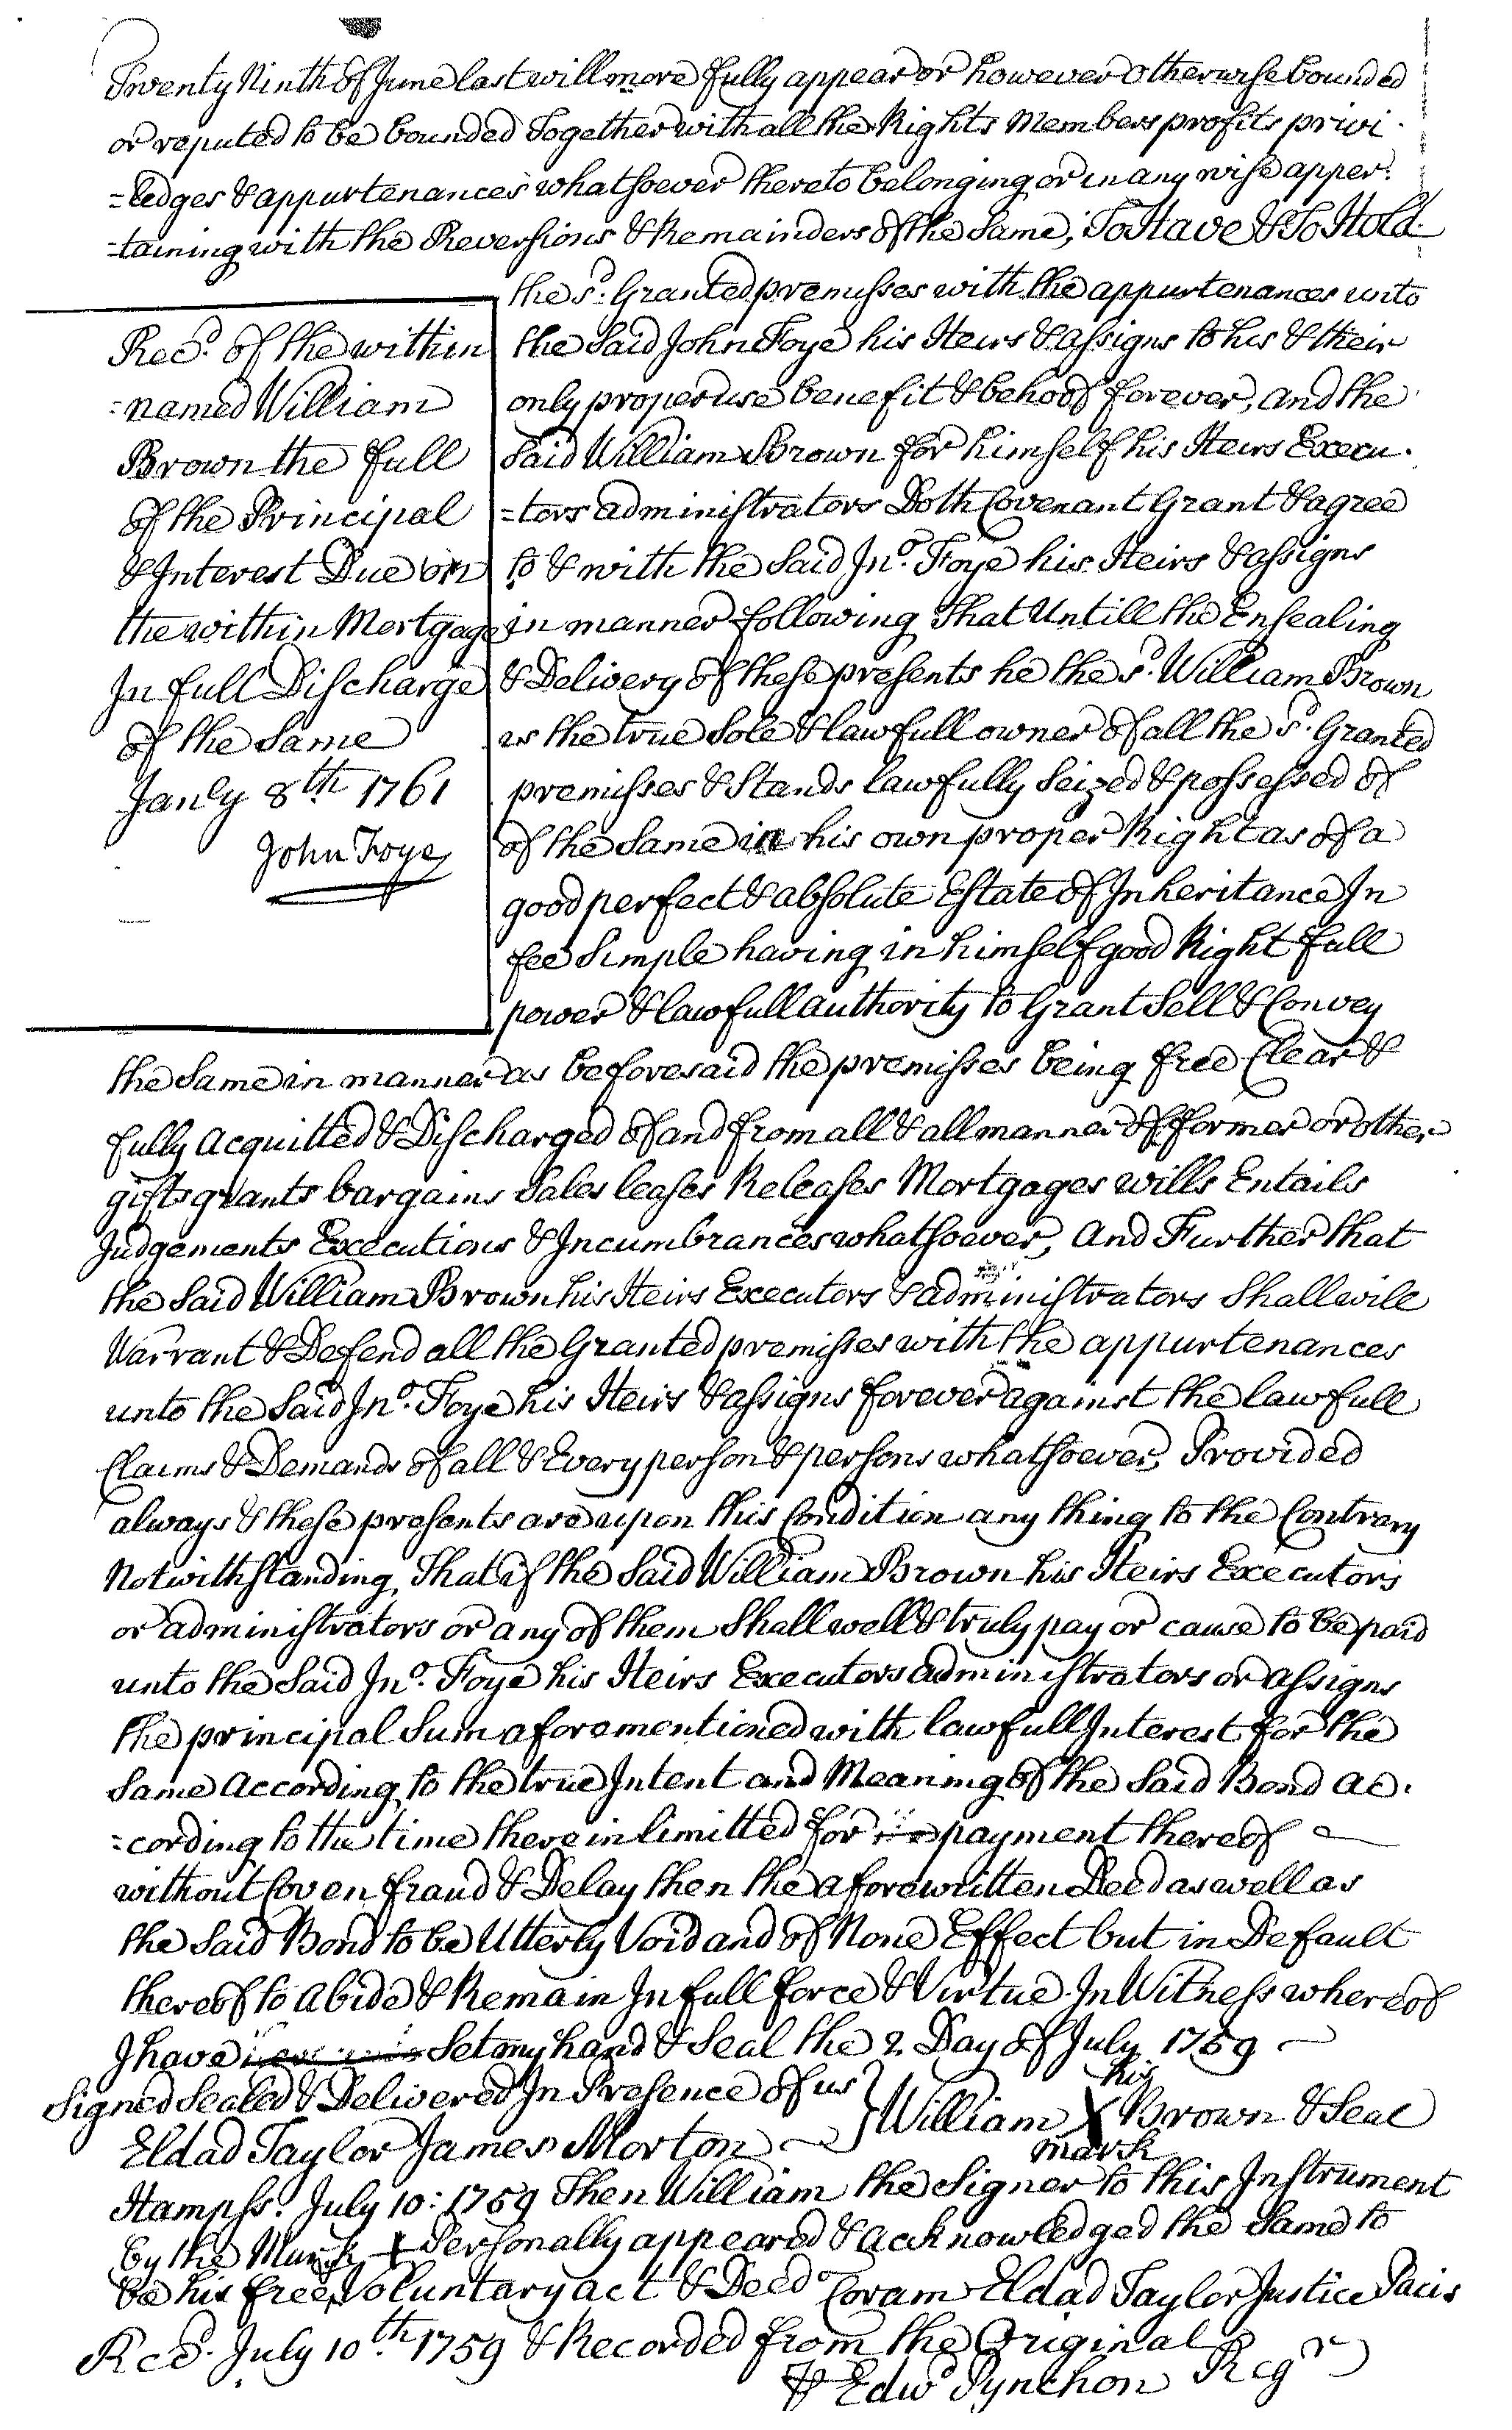 Twenty Ninth of June last will more fully appear or however otherwise bounded
or reputed to be bounded Together with all the Rights Members profits privi
=ledges & appurtenances whatsoever thereto belonging or in any wise apper
=taining with the Reversions & Remainders of the Same, To Have & To Hold
the sd. Granted premisses with the appurtenances unto
the Said John Foye his Heirs & assigns to his & their
only proper use benefit & behoof forever, and the
Said William Brown for himself his Heirs Execu
=tors administrators Doth Covenant Grant & agree
to & with the Said Jno. Foye his Heirs & assigns
in manner following That Untill the Ensealing
& Delivery of these presents he the sd. William Brown
is the true Sole & lawfull owner of all the sd. Granted
premisses & Stands lawfully Seized & possessed of
of the Same in his own proper Right as of a
good perfect & absolute Estate of Inheritance In
fee Simple having in himself good Right full
power & lawfull authority to Grant Sell & Convey
Recd. of the within
=named William
Brown the full
of the Principal
& Interest Due on
the within Mortgage
In full Discharge
of the Same
Jany 8th 1761
John Foye
the Same in manner as beforesaid the premisses being free Clear &
fully acquitted & Discharged of and from all & all manner of former or other
gifts grants bargains Sales leases Releases Mortgages wills Entails
Judgements Executions & Incumbrances whatsoever, And Further that
the Said William Brown his Heirs Executors & administrators Shall will
Warrant & Defend all the Granted premisses with the appurtenances
unto the Said Jno. Foye his Heirs & assigns forever against the lawfull
Claims & Demands of all & Every person & persons whatsoever, Provided
always & these presents are upon this Condition any thing to the Contrary
Notwithstanding That if the Said William Brown his Heirs Executors
or administrators or any of them Shall well & truly pay or cause to be paid
unto the Said Jno. Foye his Heirs Executors administrators or assigns
the principal Sum aforementioned with lawfull Interest for the
Same according to the true Intent and Meaning of the Said Bond ac
=cording to the time therein limitted for payment thereof
without Coven fraud & Delay then the aforewritten Deed as well as
the Said Bond to be Utterly Void and of None Effect but in Default
thereof to Abide & Remain In full force & Virtue. In Witness whereof
I have Set my hand & Seal the 2 Day of July 1759
Signed Sealed & Delivered In Presence of us } William his X mark Brown & Seal
Eldad Taylor James Morton
Hampss. July 10: 1759 Then William the Signer to this Instrument
by the Mark X Personally appeared & acknowledged the Same to
be his free Voluntary act & Deed Coram Eldad Taylor Justice Pacis
Recd. July 10th 1759 & Recorded from the Original
⅌ Edwd Pynchon Regr